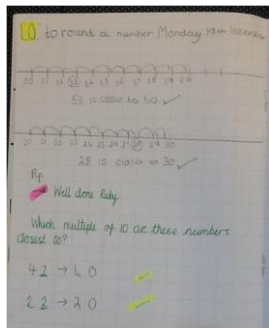 LO to round a number Monday 19th November
50 51 52 53 54 55 56 57 58 59 60
53 is closer to 50
20 21 22 23 24 25 26 27 28 29 30
28 is closer to 30
Well done Ruby
Which multiple of 10 are these numbers
closest to?
41 → 40
22 → 20